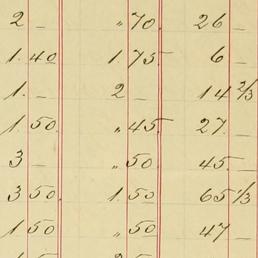 2 – „ 70. 26 –
1. 40 1 75. 6 –
1. – 2 – 14 2/3
1. 50. „ 45. 27. –
3 – „ 50 45. –
3 50. 1. 50 65 1/3
1. 50 „ 50 47 –